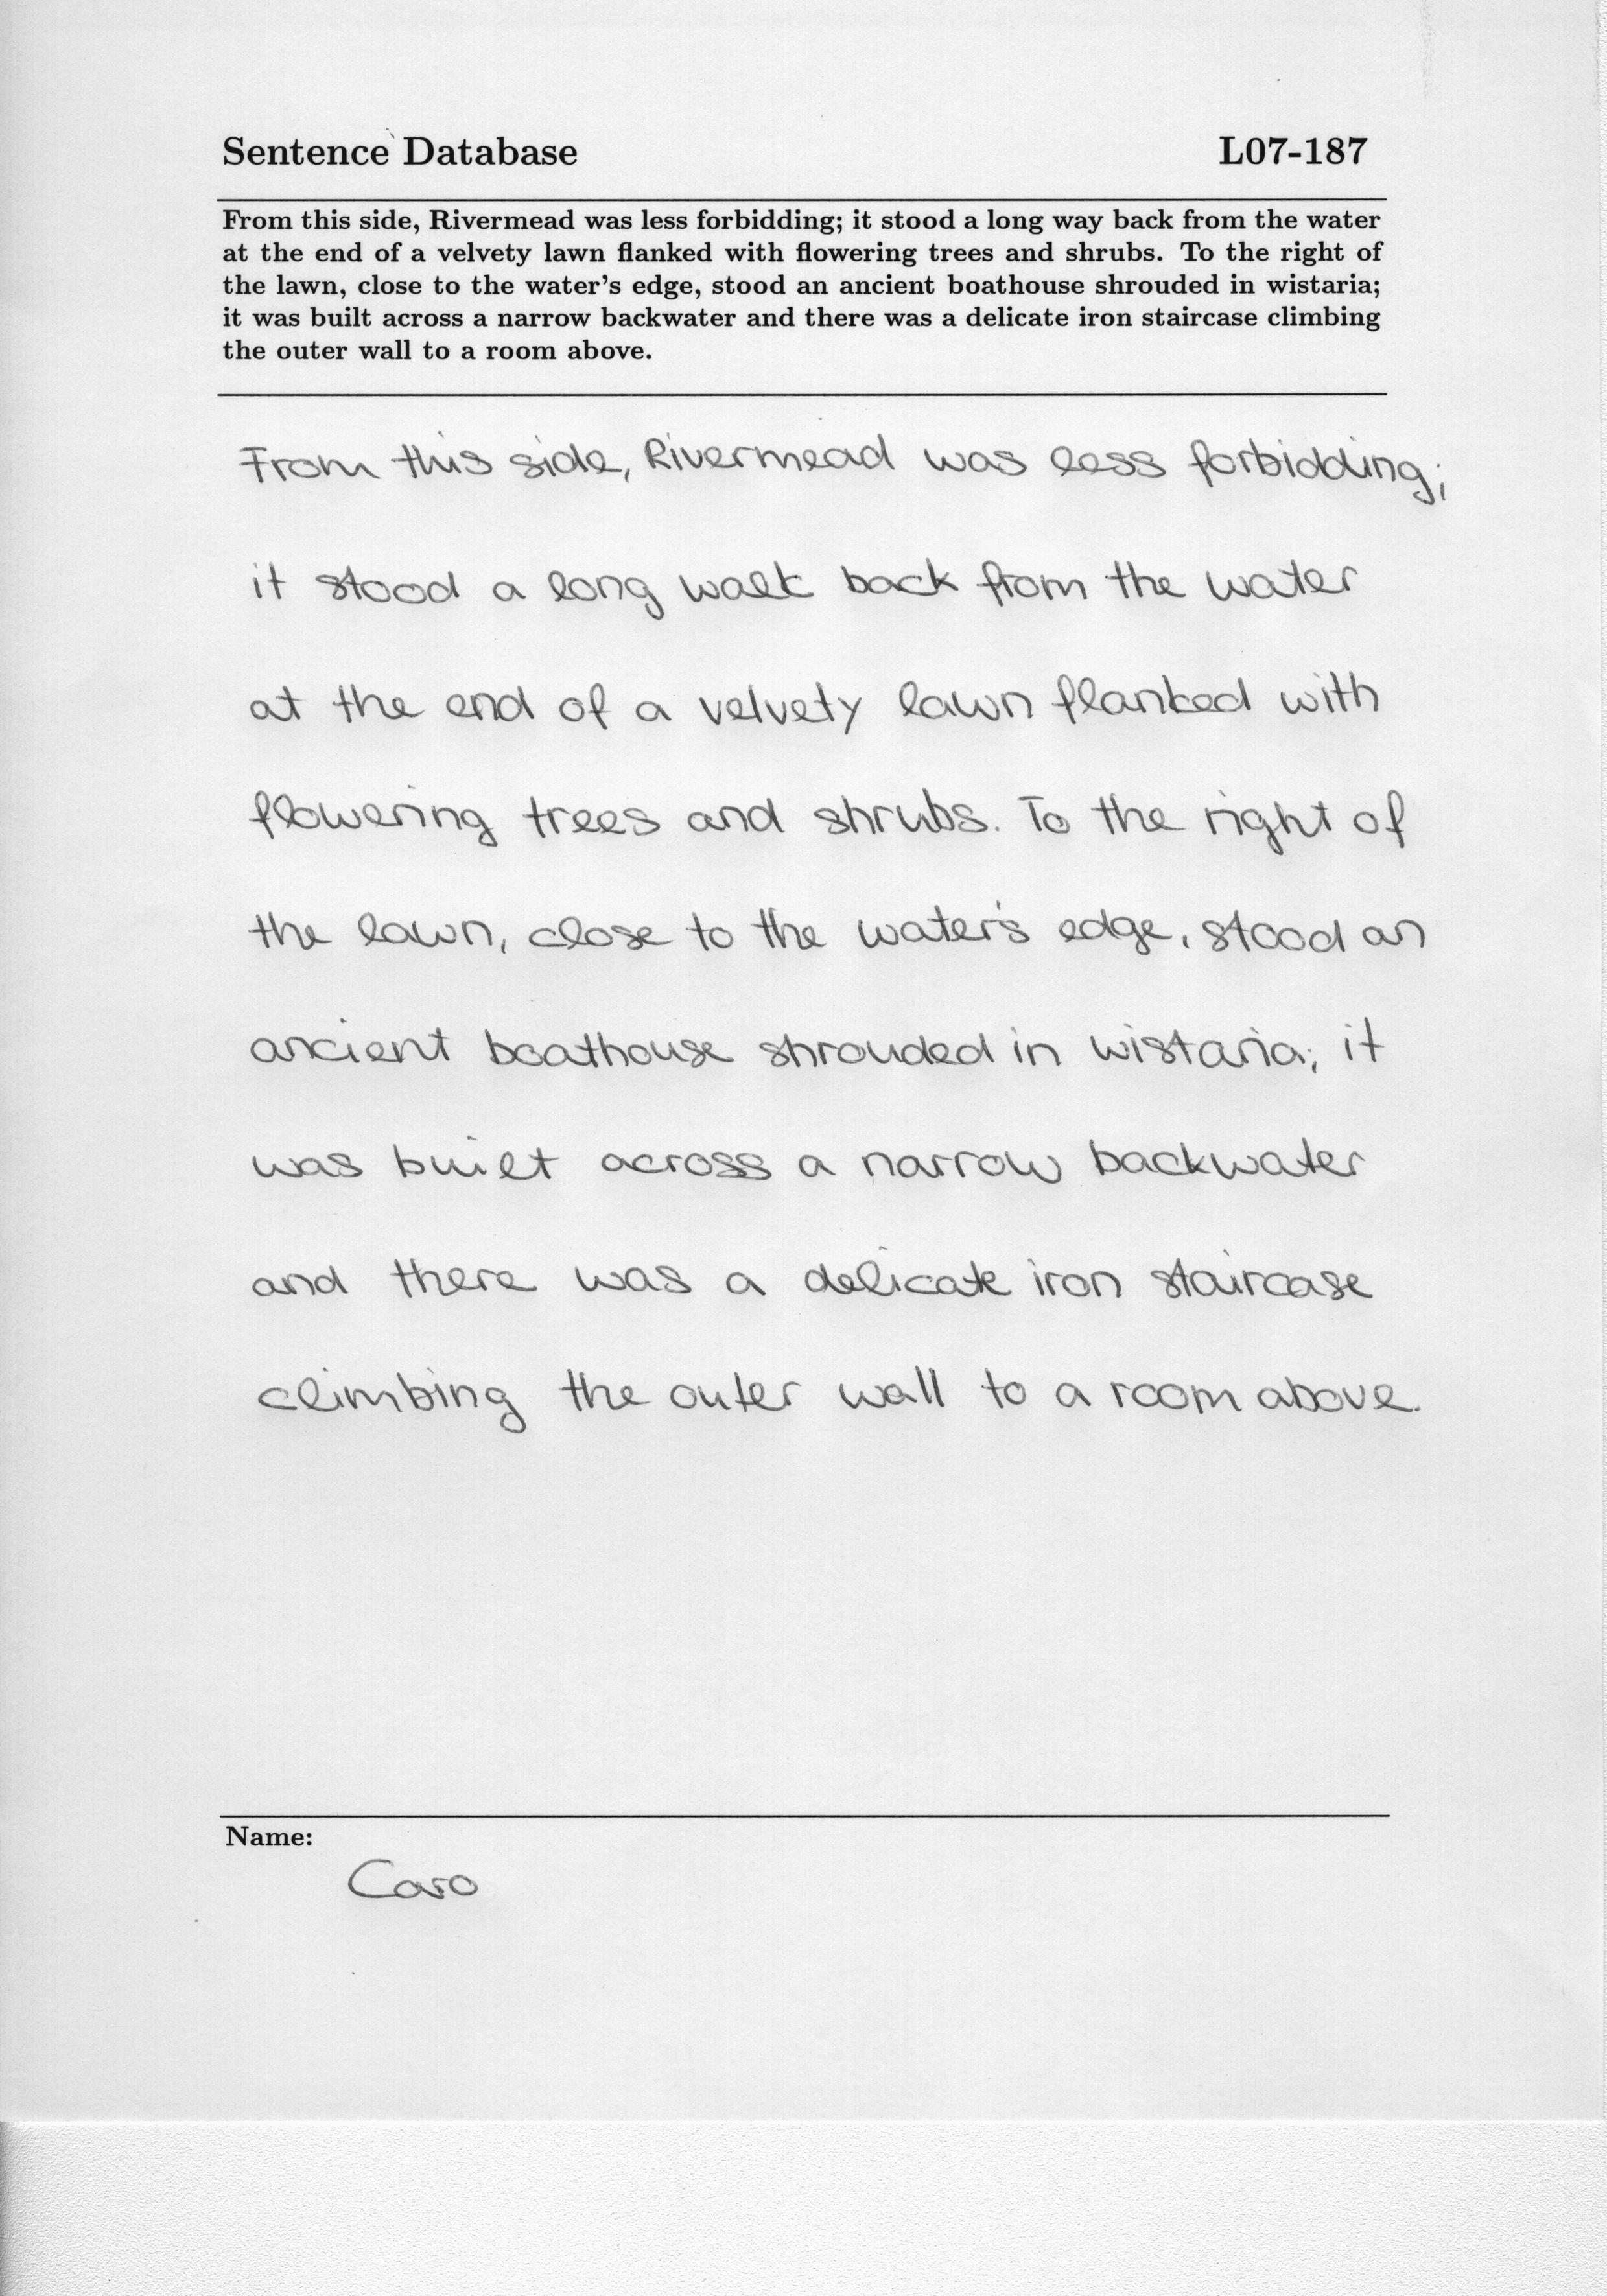 Sentence Database L07-187
From this side, Rivermead was less forbidding; it stood a long way back from the water
at the end of a velvety lawn flanked with flowering trees and shrubs. To the right of
the lawn, close to the water's edge, stood an ancient boathouse shrouded in wistaria;
it was built across a narrow backwater and there was a delicate iron staircase climbing
the outer wall to a room above.
From this side, Rivermead was less forbidding;
it stood a long walk back from the water
at the end of a velvety lawn flanked with
flowering trees and shrubs. To the right of
the lawn, close to the water's edge, stood an
ancient boathouse shrouded in wistaria; it
was built across a narrow backwater
and there was a delicate iron staircase
climbing the outer wall to a room above.
Name:
Caro